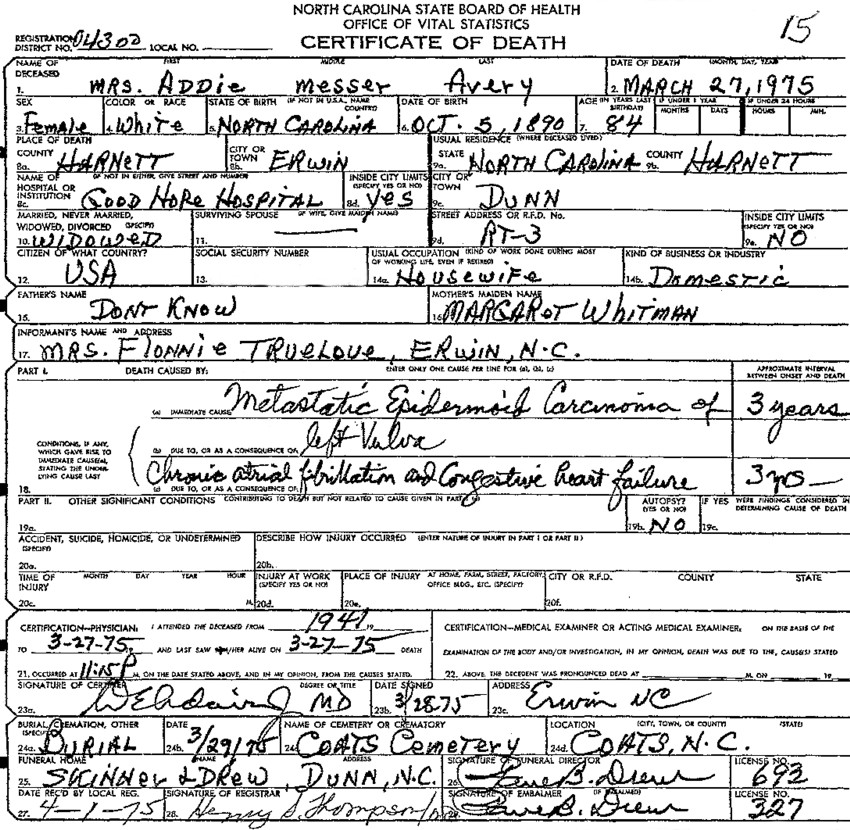 NORTH CAROLINA STATE BOARD OF HEALTH
OFFICE OF VITAL STATISTICS
CERTIFICATE OF DEATH
15
REGISTRATION DISTRICT NO. 04300 LOCAL NO.
NAME OF DECEASED FIRST MIDDLE LAST DATE OF DEATH (MONTH, DAY, YEAR)
1. MRS. ADDie messer Avery 2. MARCH 27, 1975
SEX COLOR OR RACE STATE OF BIRTH (IF NOT IN U.S.A., NAME COUNTRY) DATE OF BIRTH AGE (IN YEARS LAST BIRTHDAY) IF UNDER 1 YEAR IF UNDER 24 HOURS
MONTHS DAYS HOURS MIN.
3. Female 4. White 5. NORTH CAROLINA 6. OCT. 5, 1890 7. 84
PLACE OF DEATH USUAL RESIDENCE (WHERE DECEASED LIVED)
COUNTY 8a. HARNETT CITY OR TOWN 8b. ERWIN STATE 9a. NORTH CAROLINA COUNTY 9b. HARNETT
NAME OF HOSPITAL OR INSTITUTION (IF NOT IN EITHER, GIVE STREET AND NUMBER) INSIDE CITY LIMITS (SPECIFY YES OR NO) CITY OR TOWN
8c. GOOD HOPE HOSPITAL 8d. yes 9c. DUNN
MARRIED, NEVER MARRIED, WIDOWED, DIVORCED (SPECIFY) SURVIVING SPOUSE (IF WIFE, GIVE MAIDEN NAME) STREET ADDRESS OR R.F.D. No. INSIDE CITY LIMITS (SPECIFY YES OR NO)
10. WIDOWED 11. — 9d. RT-3 9e. NO
CITIZEN OF WHAT COUNTRY? SOCIAL SECURITY NUMBER USUAL OCCUPATION (KIND OF WORK DONE DURING MOST OF WORKING LIFE, EVEN IF RETIRED) KIND OF BUSINESS OR INDUSTRY
12. USA 13. 14a. Housewife 14b. Domestic
FATHER'S NAME MOTHER'S MAIDEN NAME
15. DONT KNOW 16. MARGAROT WhITMAN
INFORMANT'S NAME AND ADDRESS
17. MRS. Flonnie TRUELOVE, ERWIN, N.C.
PART I. DEATH CAUSED BY: ENTER ONLY ONE CAUSE PER LINE FOR (a), (b), (c) APPROXIMATE INTERVAL BETWEEN ONSET AND DEATH
(a) IMMEDIATE CAUSE Metastatic Epidermoid Carcinoma of 3 years
CONDITIONS, IF ANY, WHICH GAVE RISE TO IMMEDIATE CAUSE(a), STATING THE UNDERLYING CAUSE LAST
(b) DUE TO, OR AS A CONSEQUENCE OF, left Vulva
18. (c) DUE TO, OR AS A CONSEQUENCE OF, Chronic atrial fibrillation and Congestive heart failure 3 yrs —
PART II. OTHER SIGNIFICANT CONDITIONS CONTRIBUTING TO DEATH BUT NOT RELATED TO CAUSE GIVEN IN PART AUTOPSY? (YES OR NO) IF YES WERE FINDINGS CONSIDERED IN DETERMINING CAUSE OF DEATH
19a. 19b. NO 19c.
ACCIDENT, SUICIDE, HOMICIDE, OR UNDETERMINED (SPECIFY) DESCRIBE HOW INJURY OCCURRED (ENTER NATURE OF INJURY IN PART I OR PART II)
20a. 20b.
TIME OF INJURY MONTH DAY YEAR HOUR INJURY AT WORK (SPECIFY YES OR NO) PLACE OF INJURY AT HOME, FARM, STREET, FACTORY, OFFICE BLDG., ETC. (SPECIFY) CITY OR R.F.D. COUNTY STATE
20c. M. 20d. 20e. 20f.
CERTIFICATION—PHYSICIAN: I ATTENDED THE DECEASED FROM 1941 19 CERTIFICATION—MEDICAL EXAMINER OR ACTING MEDICAL EXAMINER: ON THE BASIS OF THE
TO 3-27-75, AND LAST SAW HIM/HER ALIVE ON 3-27-75 DEATH EXAMINATION OF THE BODY AND/OR INVESTIGATION, IN MY OPINION, DEATH WAS DUE TO THE, CAUSE(S) STATED
21. OCCURRED AT 11:15 P M. ON THE DATE STATED ABOVE, AND IN MY OPINION, FROM THE CAUSES STATED. 22. ABOVE. THE DECEDENT WAS PRONOUNCED DEAD AT M. ON 19
SIGNATURE OF CERTIFIER DEGREE OR TITLE DATE SIGNED ADDRESS
23a. MD 23b. 3/28-75 23c. Erwin NC
BURIAL, CREMATION, OTHER (SPECIFY) DATE NAME OF CEMETERY OR CREMATORY LOCATION (CITY, TOWN, OR COUNTY) (STATE)
24a. BURIAL 24b. 3/29/75 24c. COATS Cemetery 24d. COATS, N.C.
FUNERAL HOME ADDRESS SIGNATURE OF FUNERAL DIRECTOR LICENSE NO.
25. SKINNER & DREW, DUNN, N.C. 26. B. Drew 693
DATE REC'D BY LOCAL REG. SIGNATURE OF REGISTRAR SIGNATURE OF EMBALMER (IF EMBALMED) LICENSE NO.
27. 4-1-75 28. Henry S. Thompson 29. B. Drew 327